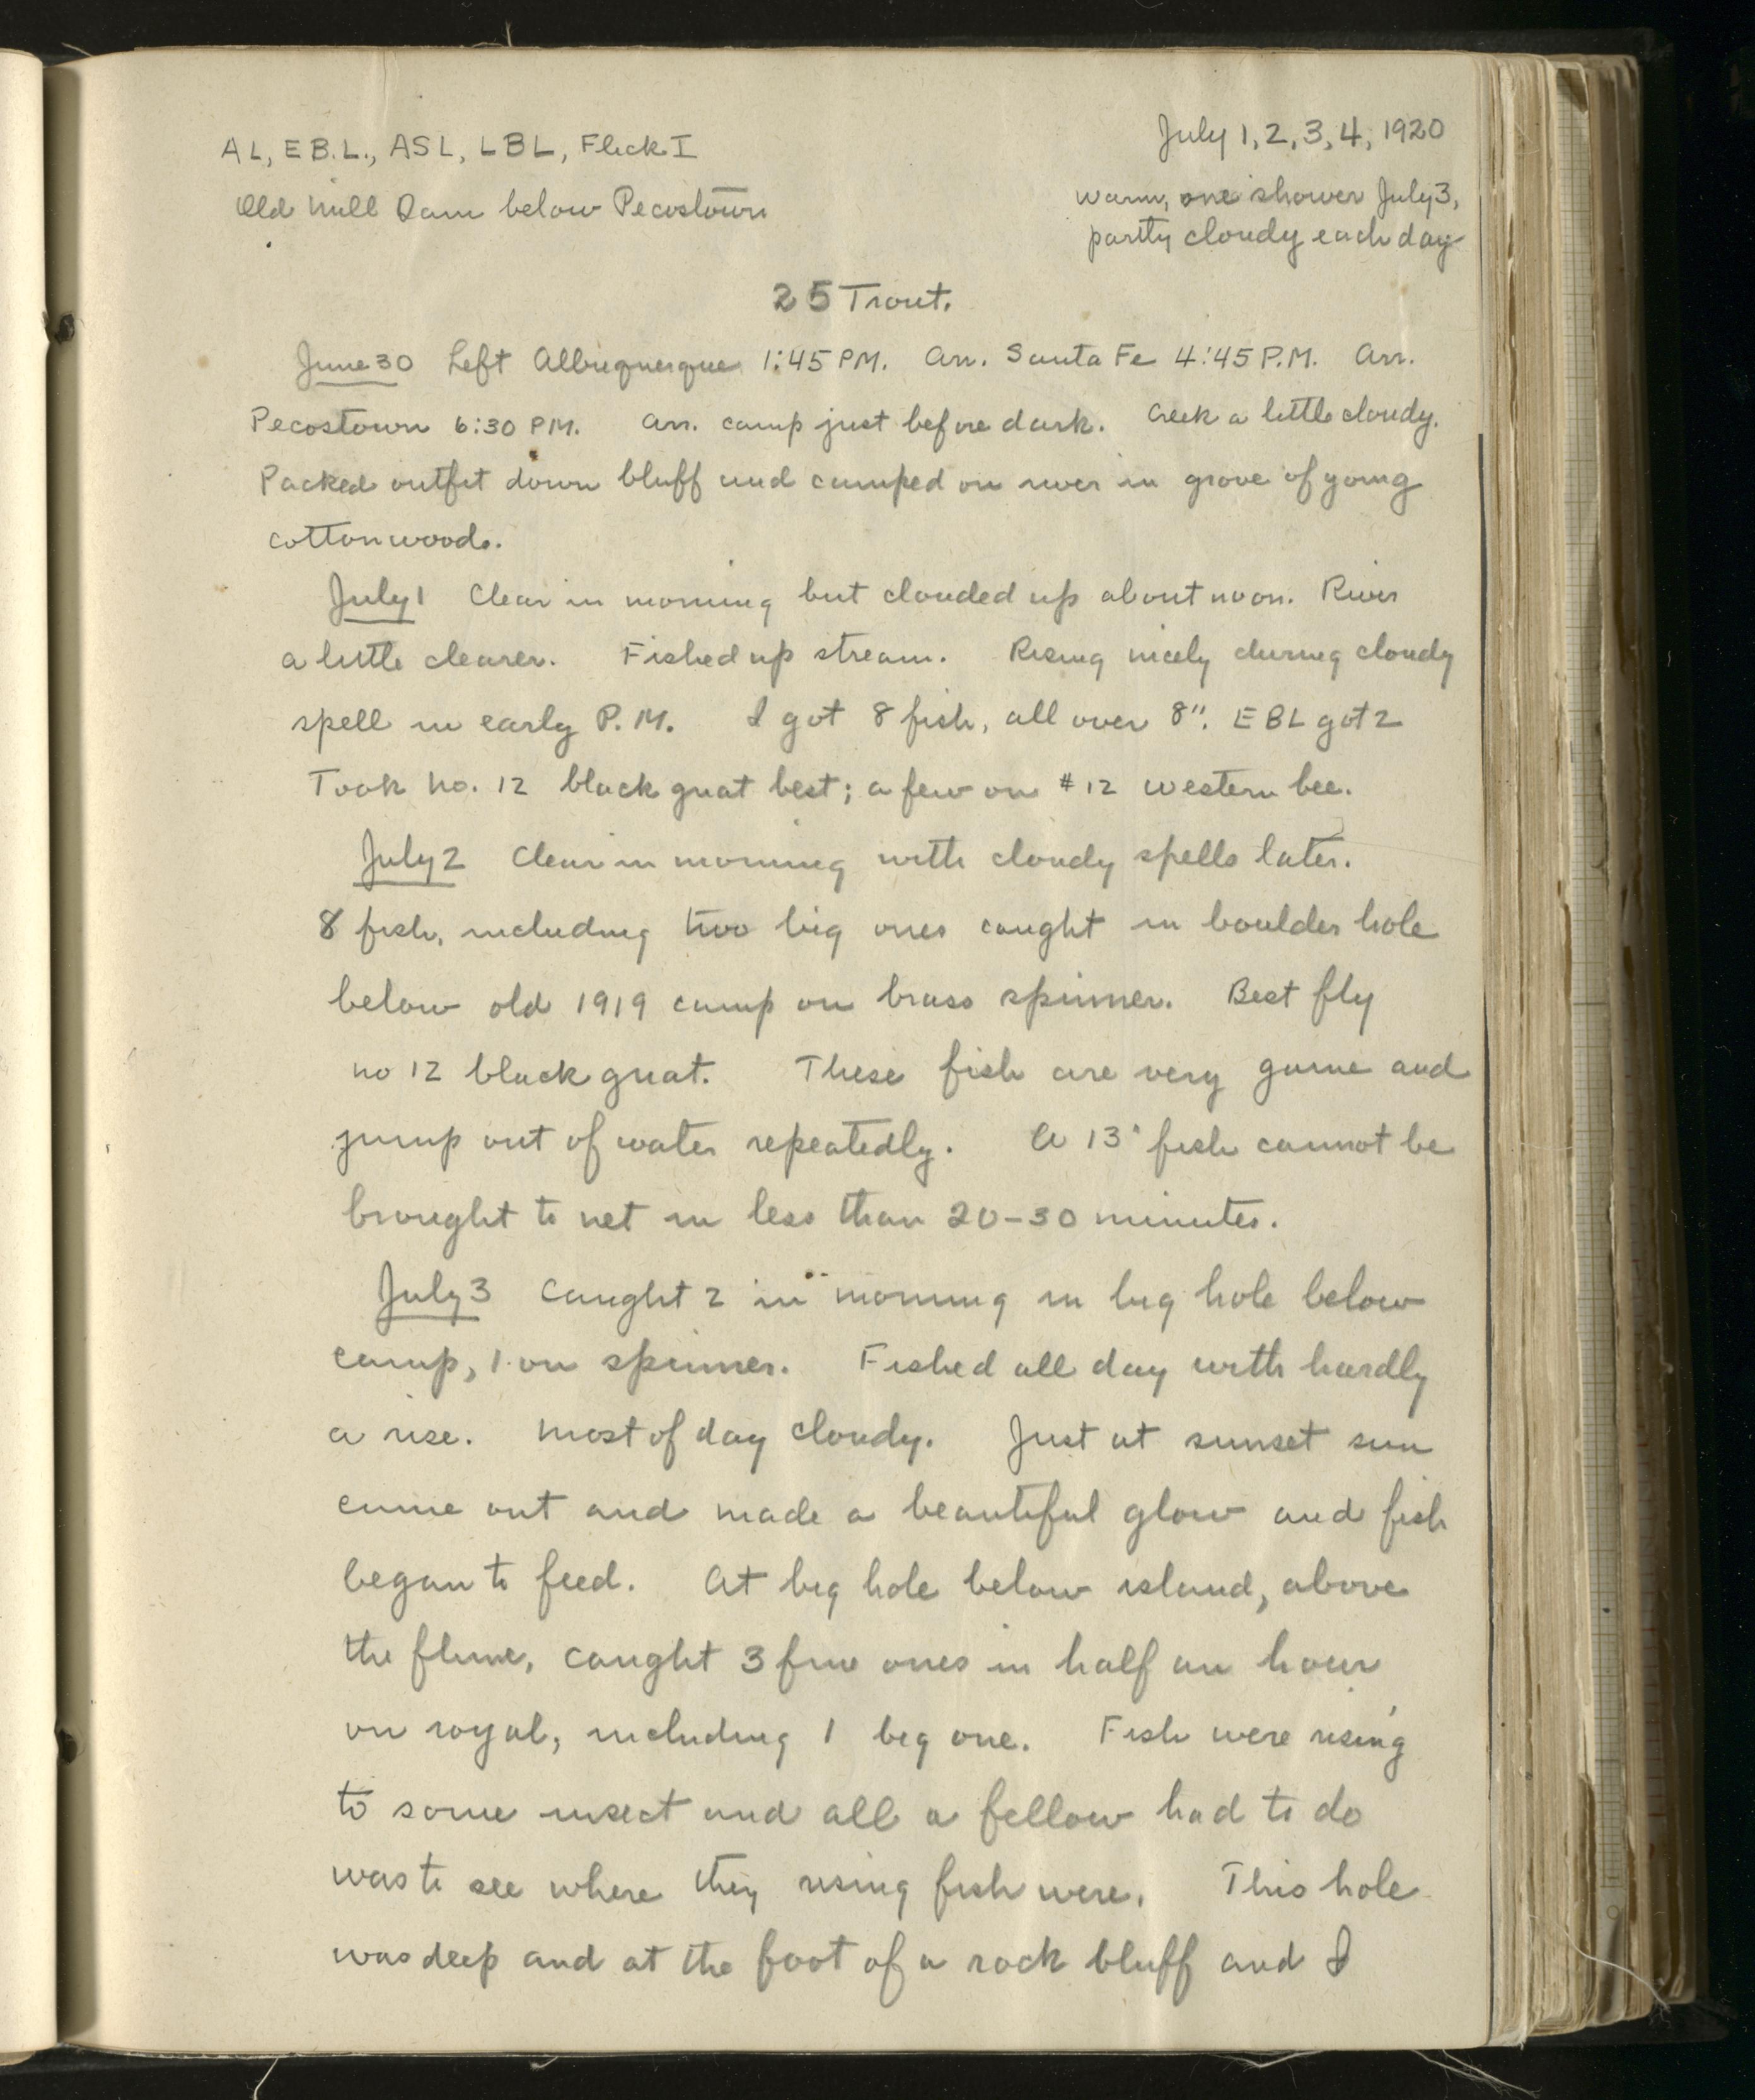 AL, E.B.L., ASL, LBL, Flick I
July 1, 2, 3, 4, 1920
Old Mill Dam below Pecostown
warm, one shower July 3,
partly cloudy each day
25 Trout.
June 30 Left Albuquerque 1:45 PM. Arr. Santa Fe 4:45 P.M. Arr.
Pecostown 6:30 PM. Arr. camp just before dark. Creek a little cloudy.
Packed outfit down bluff and camped on river in grove of young
cottonwoods.
July 1 Clear in morning but clouded up about noon. River
a little clearer. Fished up stream. Rising nicely during cloudy
spell in early P.M. I got 8 fish, all over 8". EBL got 2
Took no. 12 black gnat best; a few on #12 western bee.
July 2 Clear in morning with cloudy spells later.
8 fish, including two big ones caught in boulder hole
below old 1919 camp on brass spinner. Best fly
no 12 black gnat. These fish are very game and
jump out of water repeatedly. A 13" fish cannot be
brought to net in less than 20-30 minutes.
July 3 Caught 2 in morning in big hole below
camp, 1 on spinner. Fished all day with hardly
a rise. Most of day cloudy. Just at sunset sun
came out and made a beautiful glow and fish
began to feed. At big hole below island, above
the flume, caught 3 fine ones in half an hour
on royal, including 1 big one. Fish were rising
to some insect and all a fellow had to do
was to see where they rising fish were. This hole
was deep and at the foot of a rock bluff and I